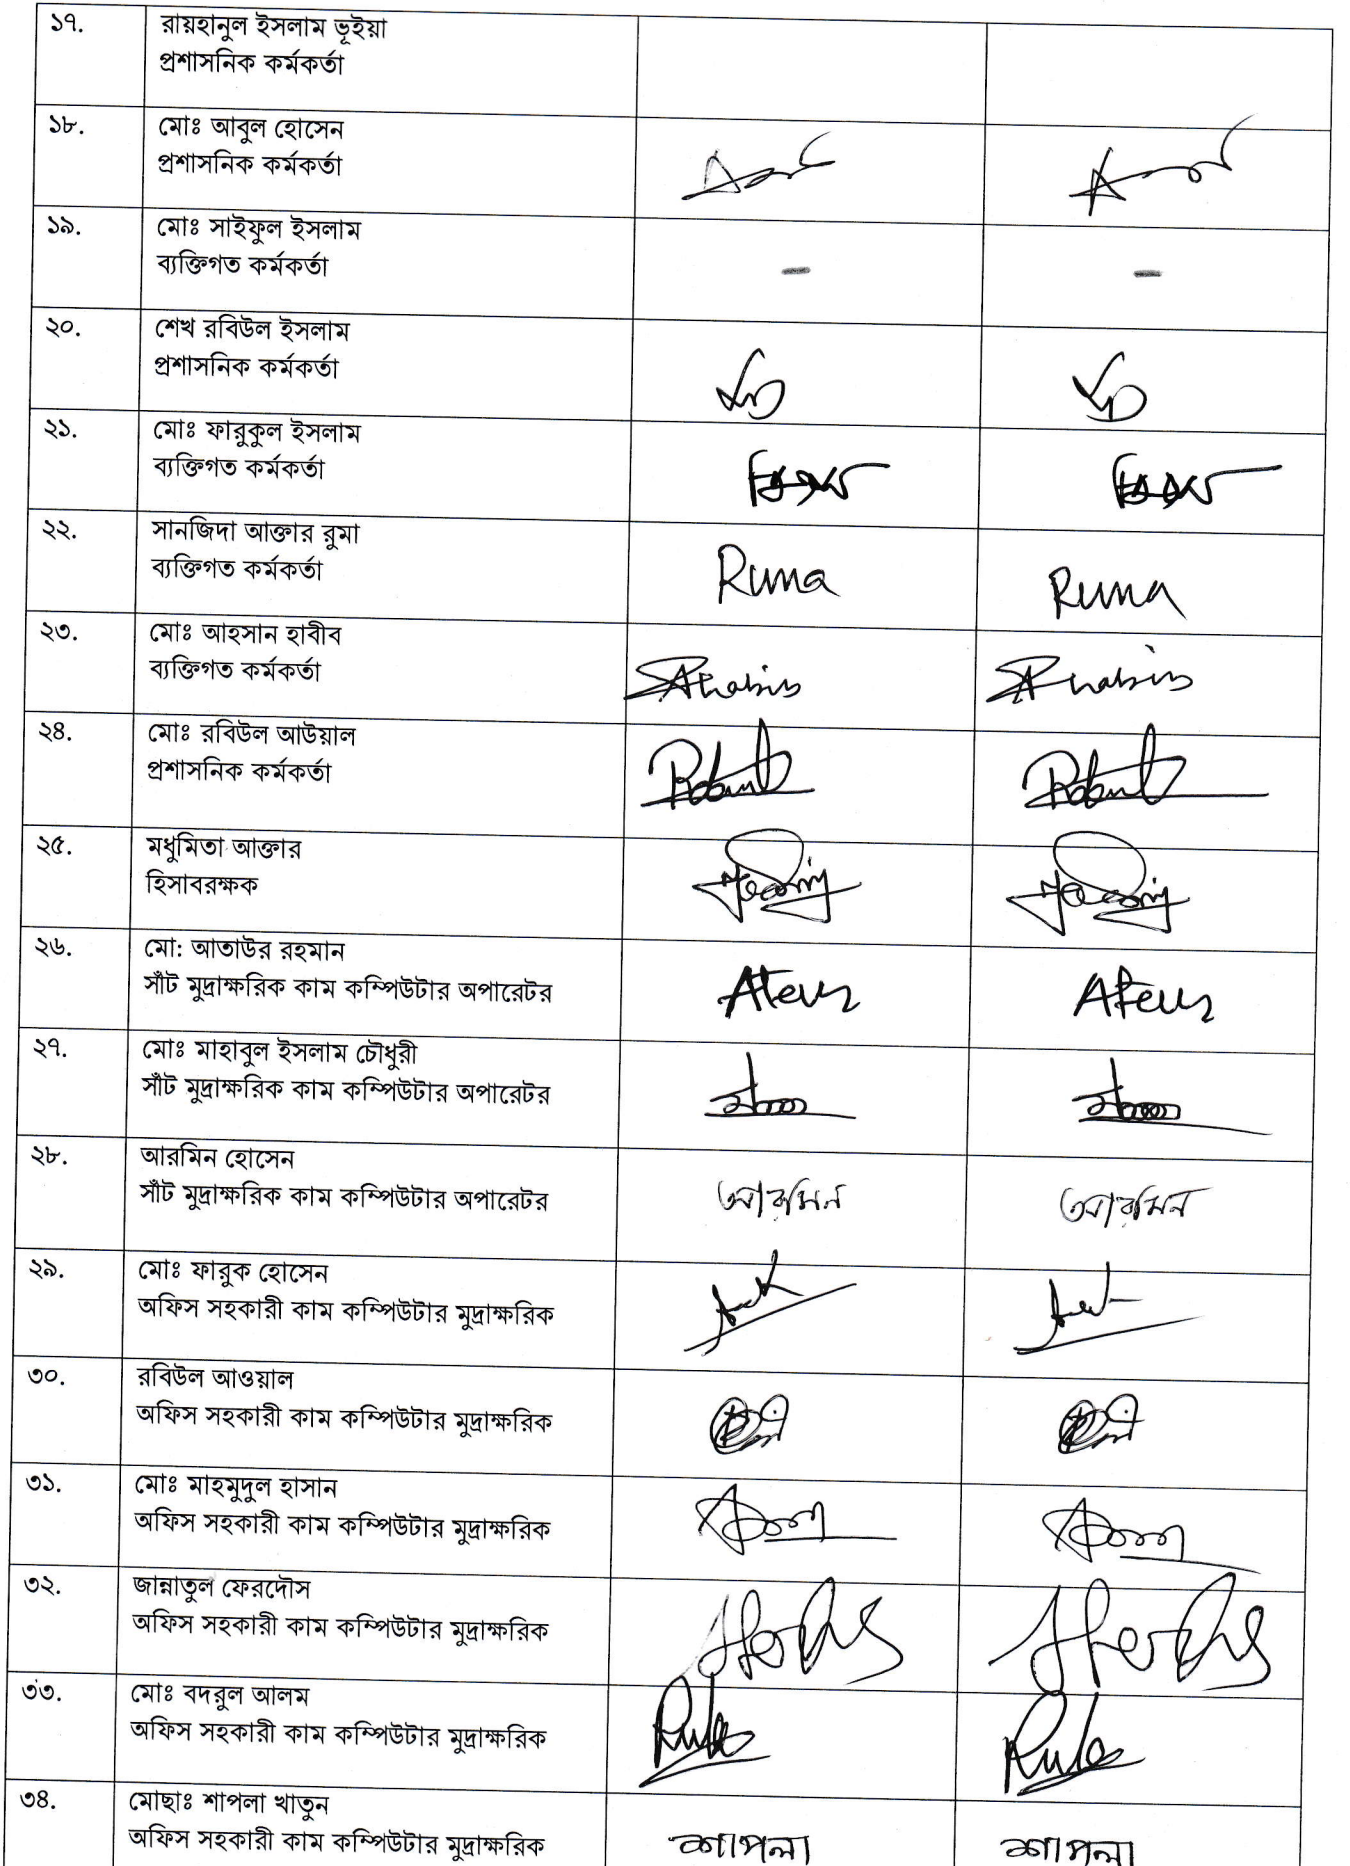 ১৭. রায়হানুল ইসলাম ভূইয়া
প্রশাসনিক কর্মকর্তা
১৮. মোঃ আবুল হোসেন
প্রশাসনিক কর্মকর্তা
১৯. মোঃ সাইফুল ইসলাম
ব্যক্তিগত কর্মকর্তা
- -
২০. শেখ রবিউল ইসলাম
প্রশাসনিক কর্মকর্তা
২১. মোঃ ফারুকুল ইসলাম
ব্যক্তিগত কর্মকর্তা
২২. সানজিদা আক্তার রুমা
ব্যক্তিগত কর্মকর্তা
Ruma Ruma
২৩. মোঃ আহসান হাবীব
ব্যক্তিগত কর্মকর্তা
২৪. মোঃ রবিউল আউয়াল
প্রশাসনিক কর্মকর্তা
২৫. মধুমিতা আক্তার
হিসাবরক্ষক
২৬. মো: আতাউর রহমান
সাঁট মুদ্রাক্ষরিক কাম কম্পিউটার অপারেটর
২৭. মোঃ মাহাবুল ইসলাম চৌধুরী
সাঁট মুদ্রাক্ষরিক কাম কম্পিউটার অপারেটর
২৮. আরমিন হোসেন
সাঁট মুদ্রাক্ষরিক কাম কম্পিউটার অপারেটর
আরমিন আরমিন
২৯. মোঃ ফারুক হোসেন
অফিস সহকারী কাম কম্পিউটার মুদ্রাক্ষরিক
৩০. রবিউল আওয়াল
অফিস সহকারী কাম কম্পিউটার মুদ্রাক্ষরিক
৩১. মোঃ মাহমুদুল হাসান
অফিস সহকারী কাম কম্পিউটার মুদ্রাক্ষরিক
৩২. জান্নাতুল ফেরদৌস
অফিস সহকারী কাম কম্পিউটার মুদ্রাক্ষরিক
৩৩. মোঃ বদরুল আলম
অফিস সহকারী কাম কম্পিউটার মুদ্রাক্ষরিক
৩৪. মোছাঃ শাপলা খাতুন
অফিস সহকারী কাম কম্পিউটার মুদ্রাক্ষরিক
শাপলা শাপলা